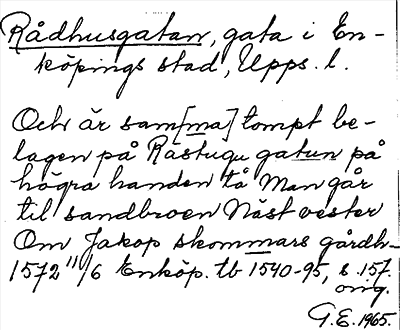 Rådhusgatan, gata i En-
köpings stad, Upps. l.
Och är sam[ma] tompt be-
lagen på Rästugu gatun på
högra handen tå Man går
til sandbroen Näst vester
Om Jakop skommars gårdh-
1572 11/6 Enköp. tb 1540-95, s. 157.
orig.
G.E. 1965.